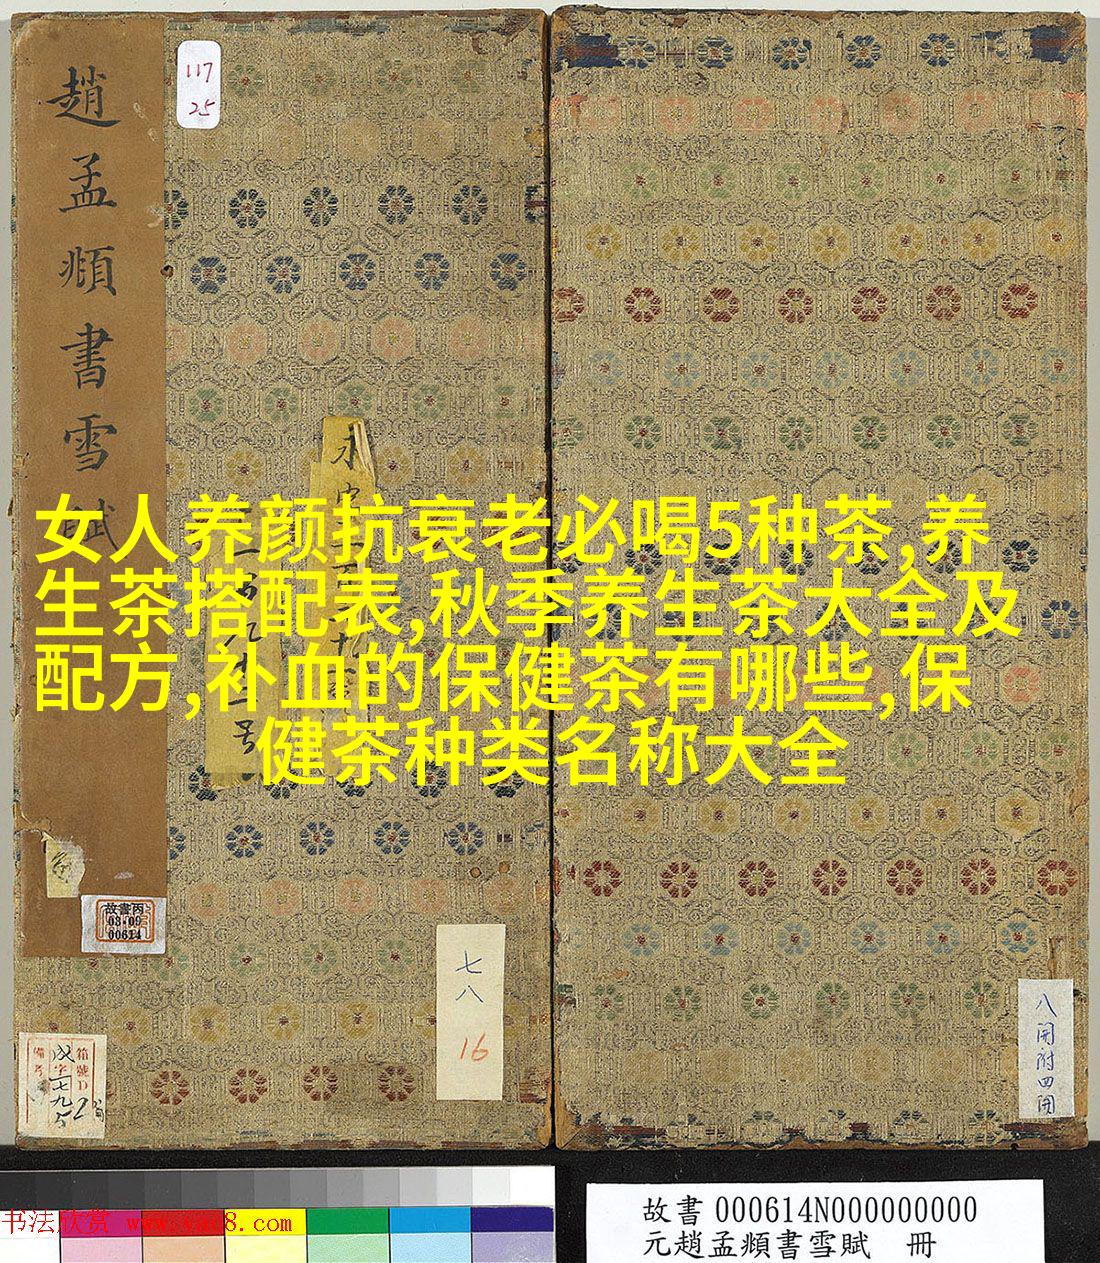 趙孟頫書雪賦
117
25
女人养颜抗衰老必喝5种茶,养
生茶搭配表,秋季养生茶大全及
配方,补血的保健茶有哪些,保
健茶种类名称大全
故書丙
08·09
00614
七八
16
箱號D
備考
八開附四開
书法欣赏
故書 000614N000000000
元趙孟頫書雪賦 冊